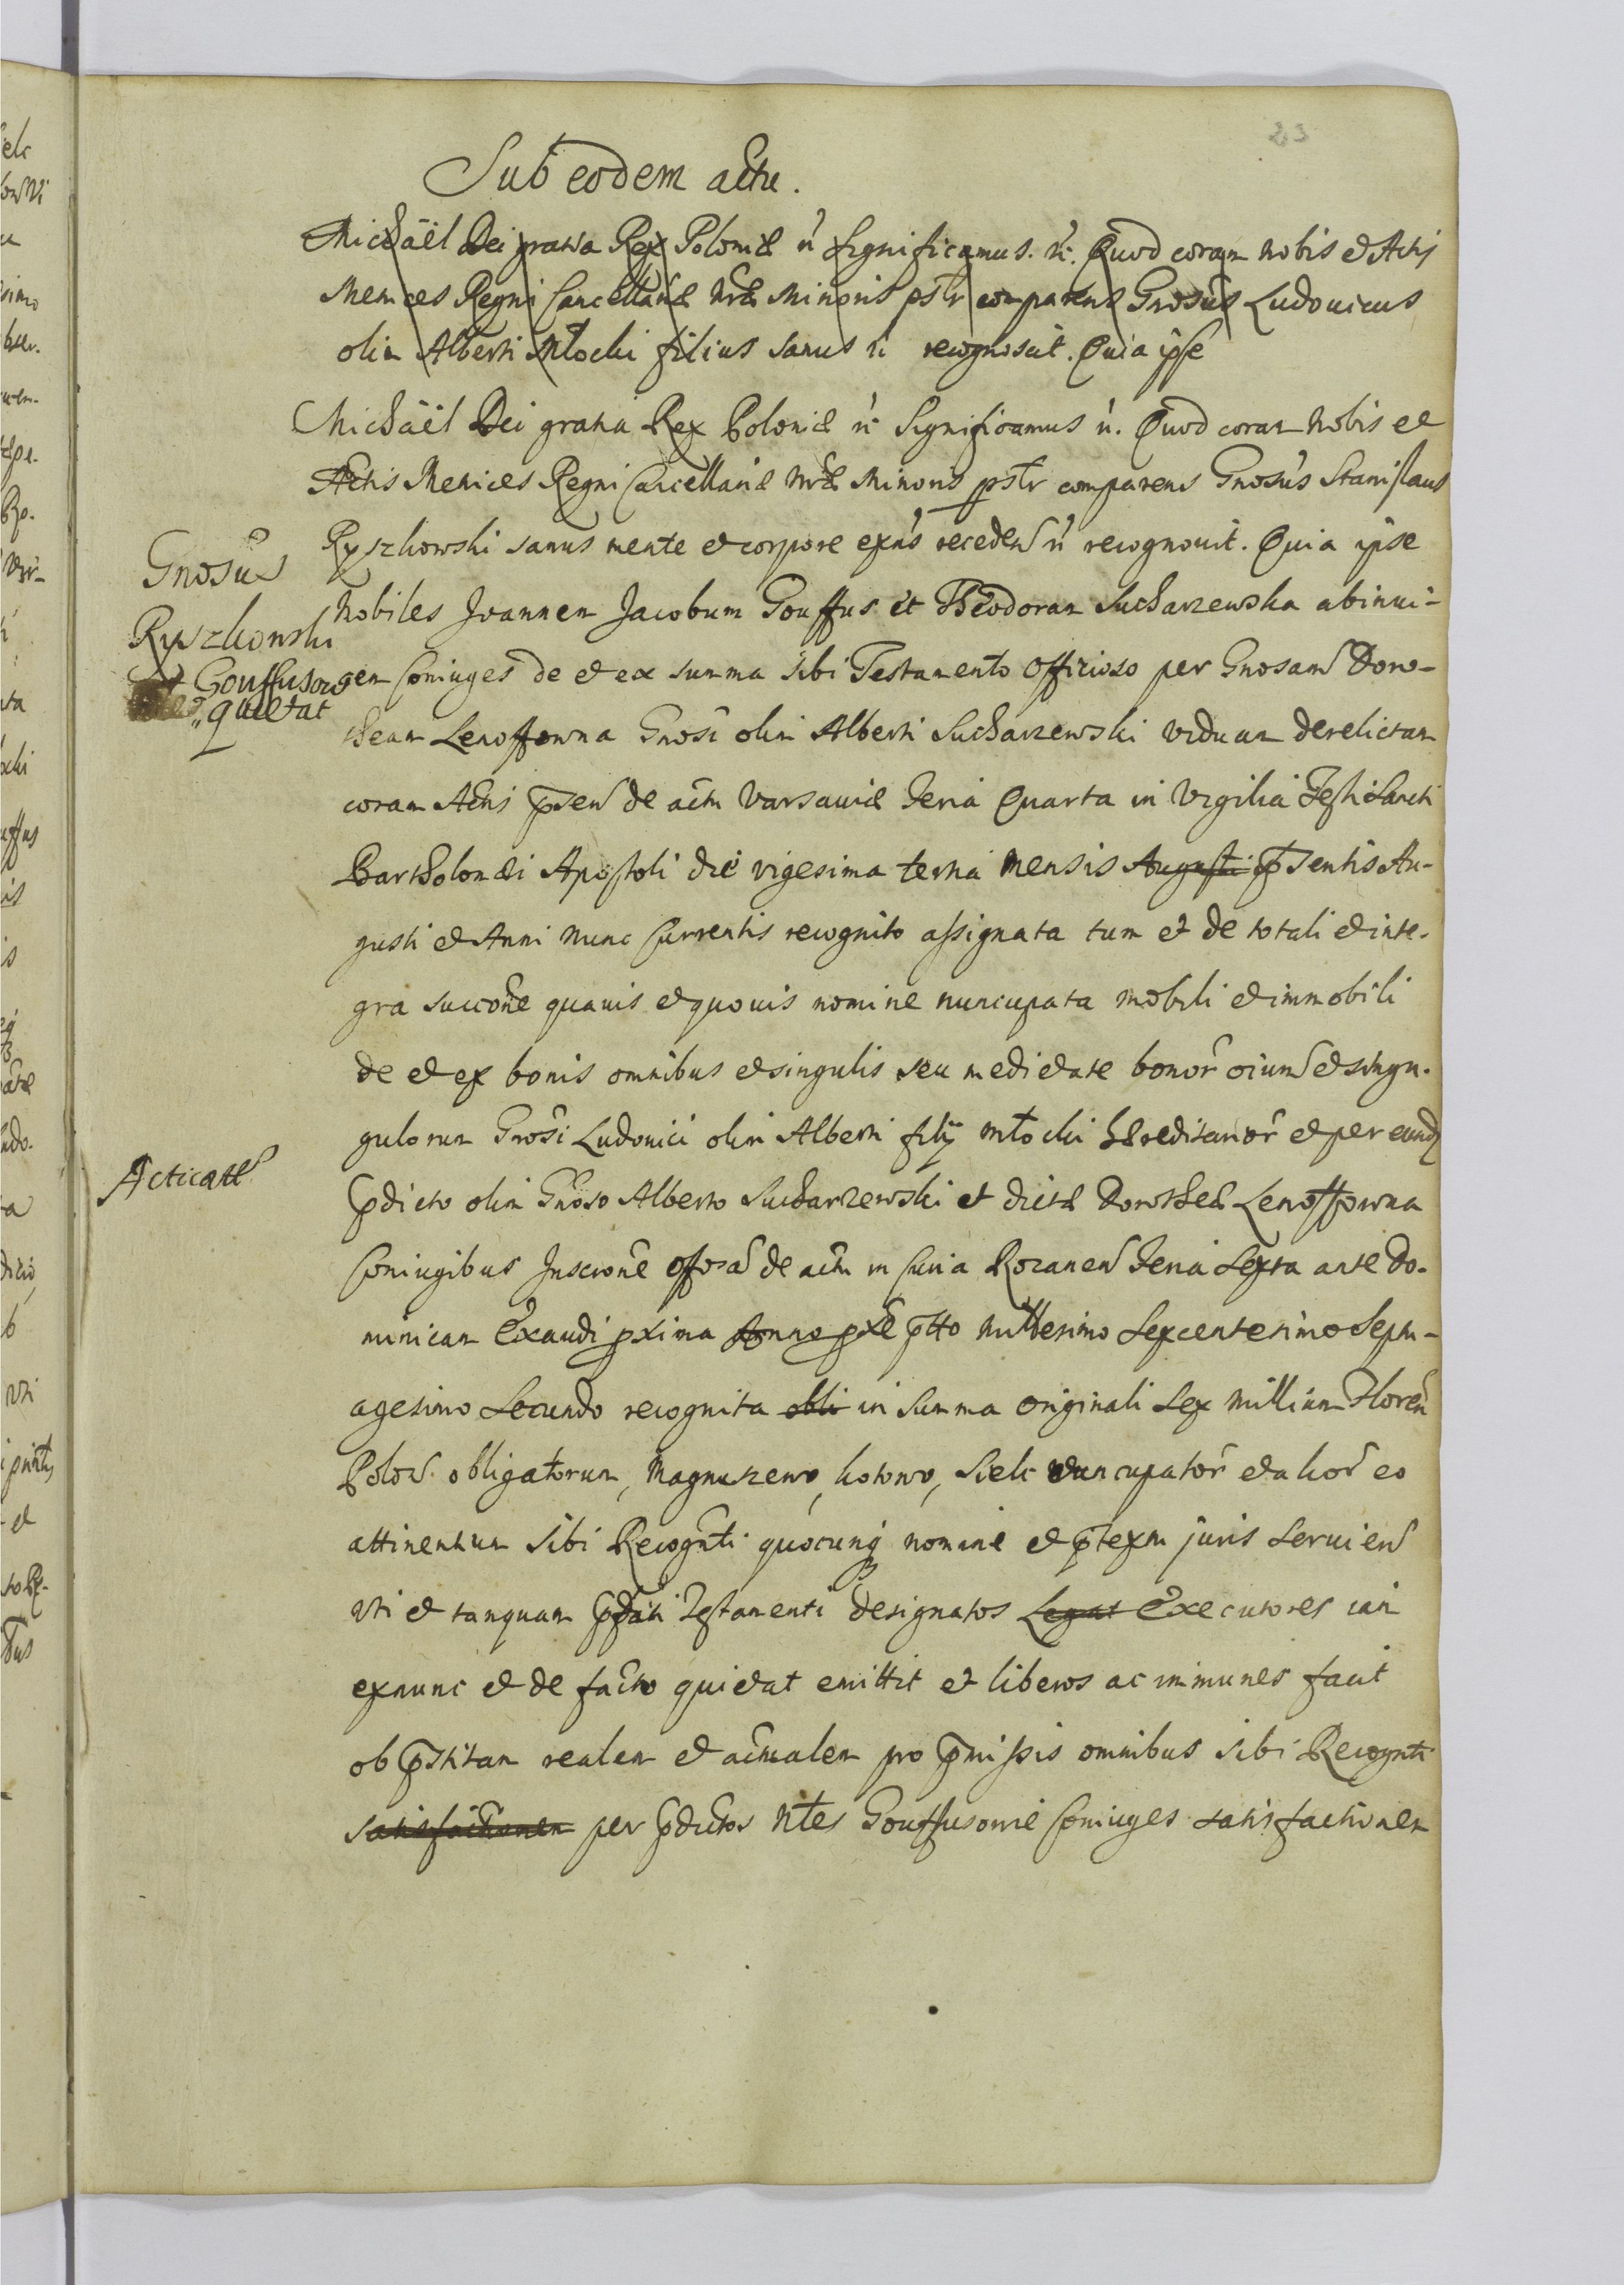 23
Sub eodem actu.
Michäel Dei gratia Rex Poloniæ etc Significamus. etc. Quod coram nobis et Actis
Metrices Regni Cancellariæ Nræ Minoris psltr comparens Gnosus Ludouicus
olim Alberti Młocki filius sanus etc recognoscit. Quia ipse
Michäel Dei gratia Rex Poloniæ etc Significamus etc. Quod coram Nobis et
Actis Metrices Regni Cancellariæ Nræ Minoris psltr comparens Gnosus Stanislaus
Ryszkowski sanus mente et corpore expns receden etc recognouit. Quia ipse
Nobiles Joannem Jacobum Gouffus et Theodoram Sucharzewska abinui-
cem Coniuges de et ex summa sibi Testamento Officioso per Gnosam Doro-
theam Lenoffowna Gnosi olim Alberti Sucharzewski viduam derelictam
coram Actis psen de actu Varsauiæ Feria Quarta in Vigilia Festi Sancti
Bartholomæi Apostoli die vigesima terna Mensis Augusti psentis Au-
gusti et Anni Nunc Currentis recognito assignata tum et de totali et inte-
gra succone quauis et quouis nomine nuncupata mobili et immobili
de et ex bonis omnibus et singulis seu medietate bonor oium et singu-
gulorum Gnosi Ludouici olim Alberti filij Młocki hæreditarior et per eund
pdicto olim Gnoso Alberto Sucharzewski et dictæ Dorotheæ Lenoffowna
Coniugibus Inscrione offosa de actu in Curia Rozanen Feria Sexta ante Do-
minicam Exaudi pxima Anno pxe ptto Millesimo Sexcentesimo Septu-
agesimo Secundo recognita obli in Summa originali Sex Millium Floren
Polon. obligatorum, Magnuszewo, kotowo, Sielc nuncupator et alior eo
attinentium Sibi Recognti quocunq nomine et ptextu juris seruien
vti et tanquam pdicti Testamenti designatos Legat Executores iam
exnunc et de facto quietat emittit et liberos ac immunes facit
ob pstitam realem et actualem pro pmissis omnibus sibi Recognti
satisfactionem per pdictos Nles Gouffusowie Coniuges satisfactionem
Gnosus
Ryszkowski
Gouffusow
quietat
Acticatæ